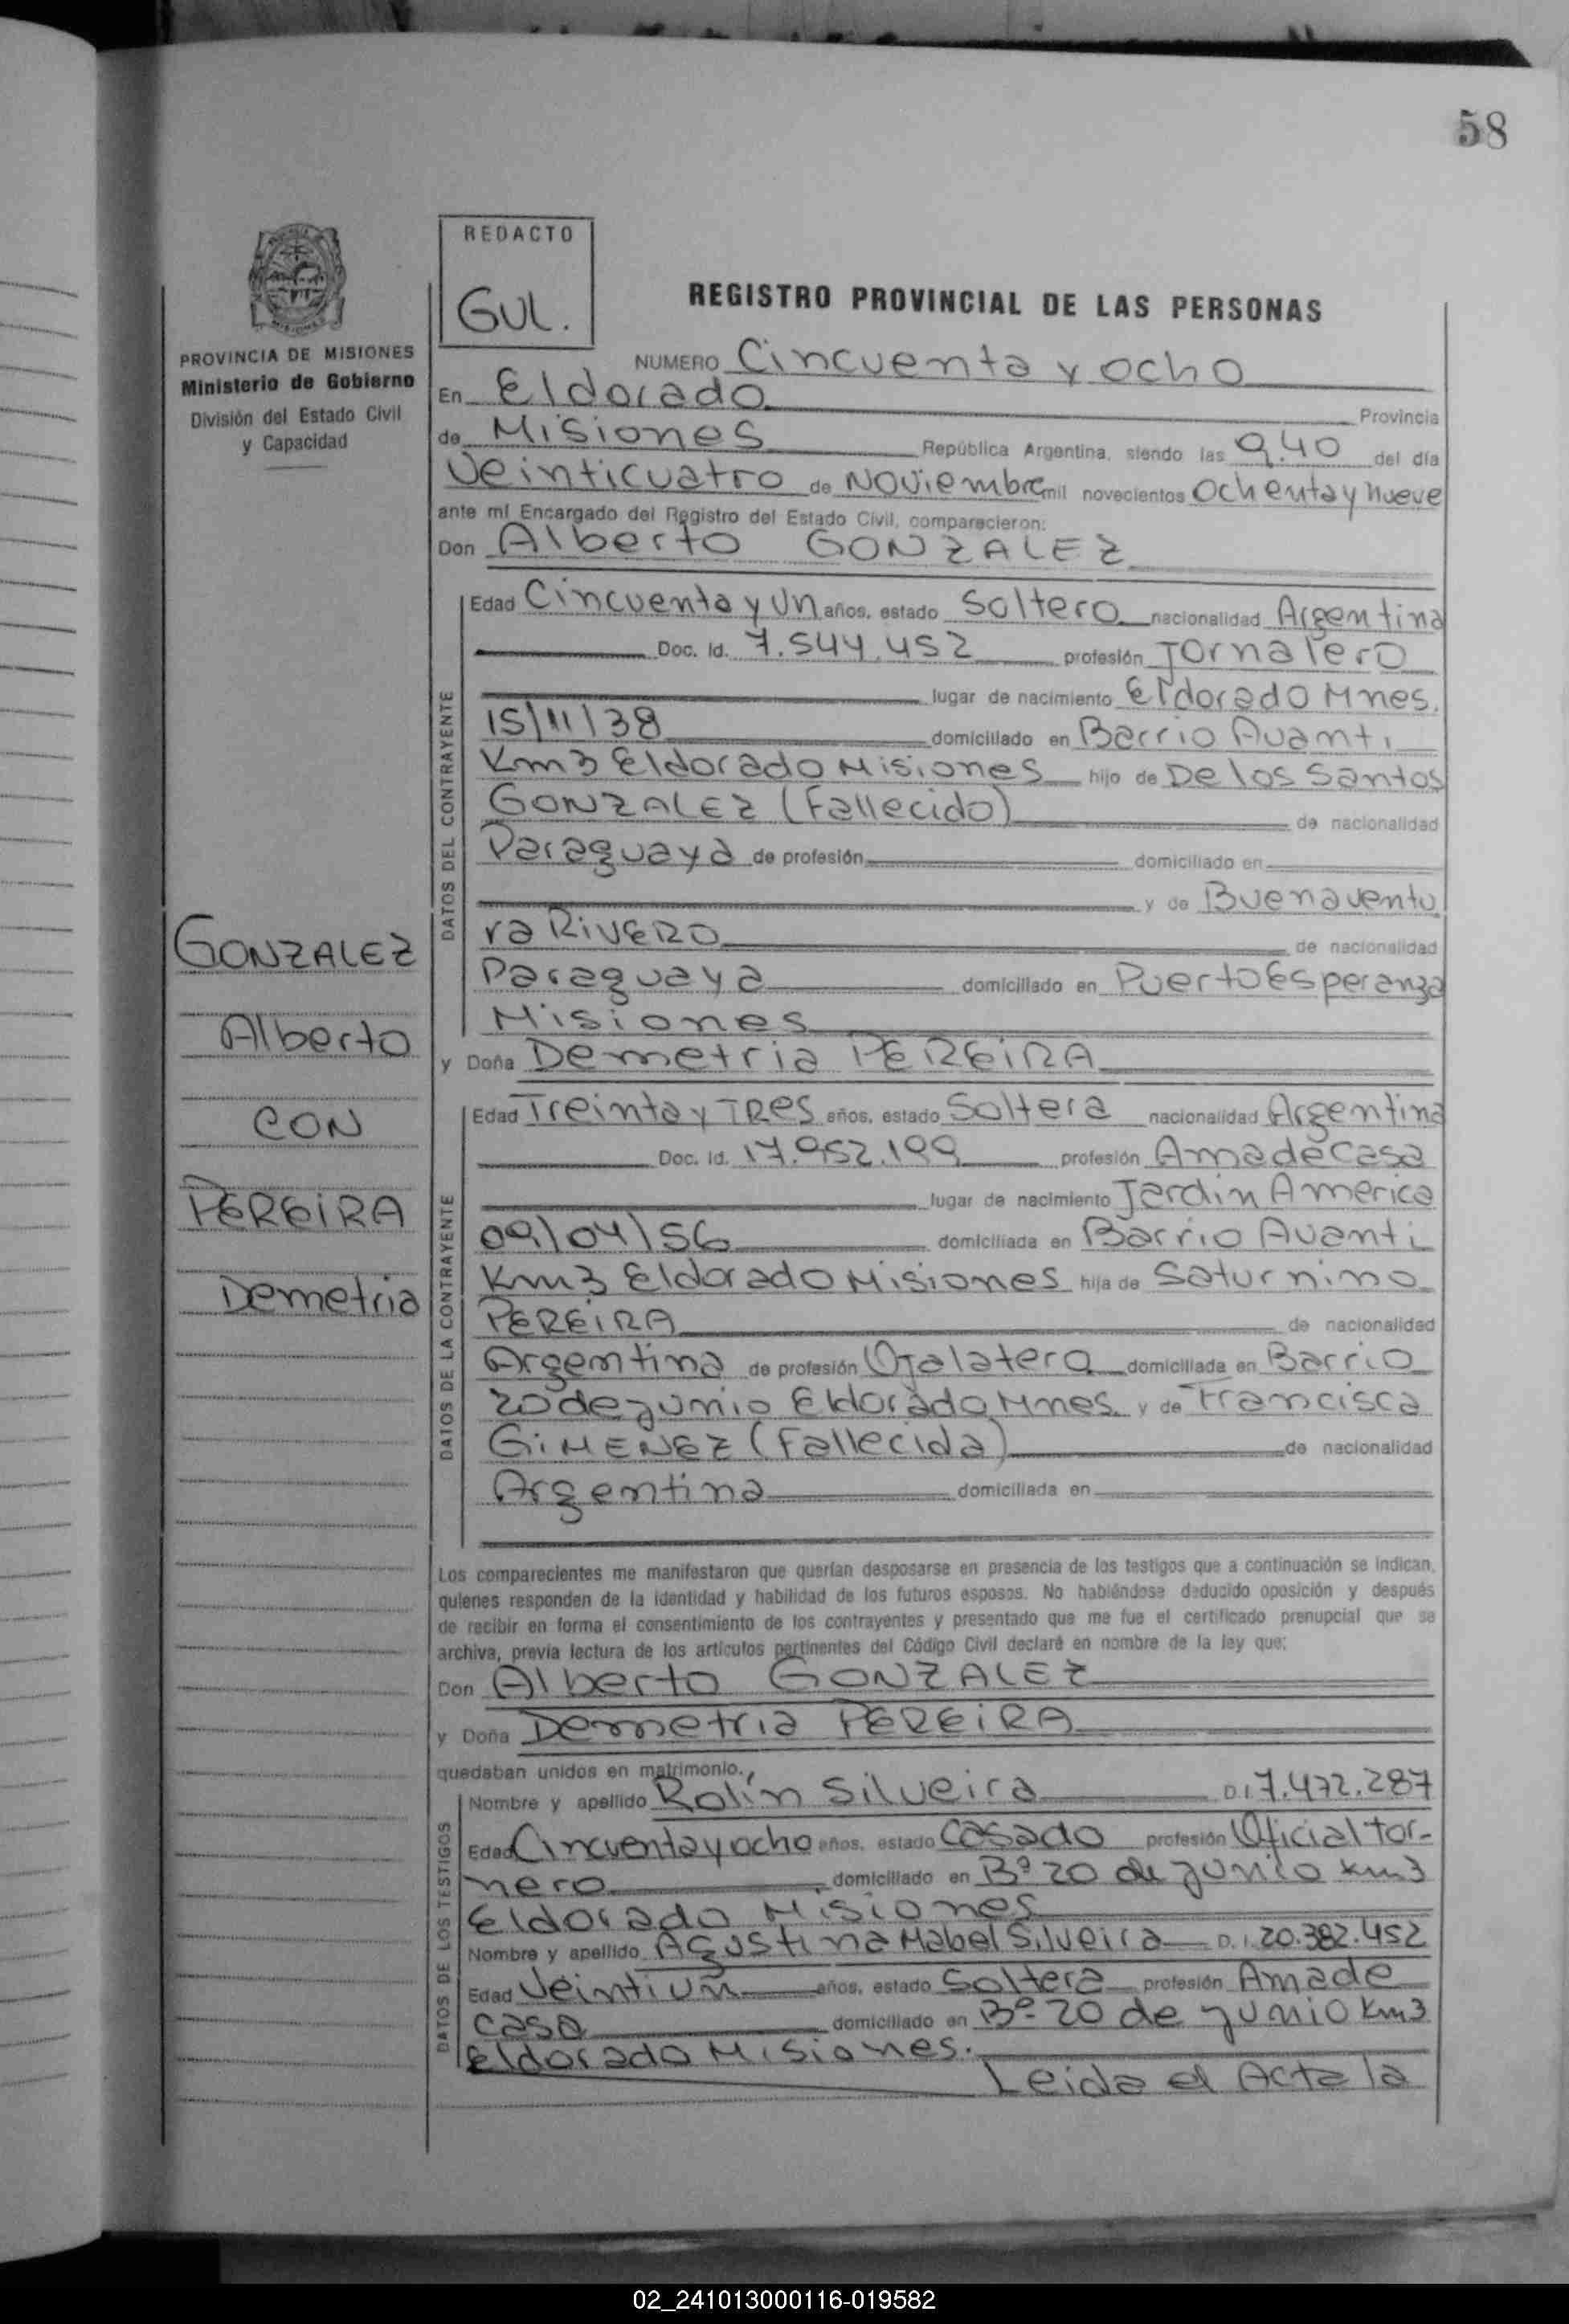 58
REDACTO
GUL.
REGISTRO PROVINCIAL DE LAS PERSONAS
PROVINCIA DE MISIONES
Ministerio de Gobierno
División del Estado Civil
y Capacidad
NUMERO Cincuenta y ocho
En Eldorado Provincia
de Misiones República Argentina, siendo las 9.40 del día
Veinticuatro de Noviembre mil novecientos Ochenta y nueve
ante mí Encargado del Registro del Estado Civil, comparecieron:
Don Alberto GONZALEZ
DATOS DEL CONTRAYENTE
Edad Cincuenta y Un años, estado Soltero nacionalidad Argentina
Doc. Id. 7.544.452 profesión Jornalero
lugar de nacimiento Eldorado Mnes.
15/11/38 domiciliado en Barrio Avanti
Km3 Eldorado Misiones hijo de De los Santos
GONZALEZ (Fallecido) de nacionalidad
Paraguaya de profesión domiciliado en
y de Buenaventu
ra RIVERO de nacionalidad
Paraguaya domiciliado en Puerto Esperanza
Misiones
y Doña Demetria PEREIRA
GONZALEZ
Alberto
CON
PEREIRA
Demetria
DATOS DE LA CONTRAYENTE
Edad Treinta y TRes años, estado Soltera nacionalidad Argentina
Doc. Id. 17.952.199 profesión Ama de casa
lugar de nacimiento Jardin America
09/04/56 domiciliada en Barrio Avanti
Km3 Eldorado Misiones hija de Saturnino
PEREIRA de nacionalidad
Argentina de profesión Ojalatero domiciliada en Barrio
20 de junio Eldorado Mnes. y de Francisca
GiMENEZ (Fallecida) de nacionalidad
Argentina domiciliada en
Los comparecientes me manifestaron que querían desposarse en presencia de los testigos que a continuación se indican,
quienes responden de la identidad y habilidad de los futuros esposos. No habiéndose deducido oposición y después
de recibir en forma el consentimiento de los contrayentes y presentado que me fue el certificado prenupcial que se
archiva, previa lectura de los artículos pertinentes del Código Civil declaré en nombre de la ley que:
Don Alberto GONZALEZ
y Doña Demetria PEREIRA
quedaban unidos en matrimonio.
DATOS DE LOS TESTIGOS
Nombre y apellido Rolín Silveira D.I. 7.472.287
Edad Cincuenta y ocho años, estado Casado profesión Oficial tor-
nero domiciliado en Bº 20 de junio km3
Eldorado Misiones
Nombre y apellido Agustina Mabel Silveira D.I. 20.382.452
Edad Veintiun años, estado Soltera profesión Ama de
casa domiciliado en Bº 20 de junio Km3
Eldorado Misiones.
Leida el Acta la
02_241013000116-019582